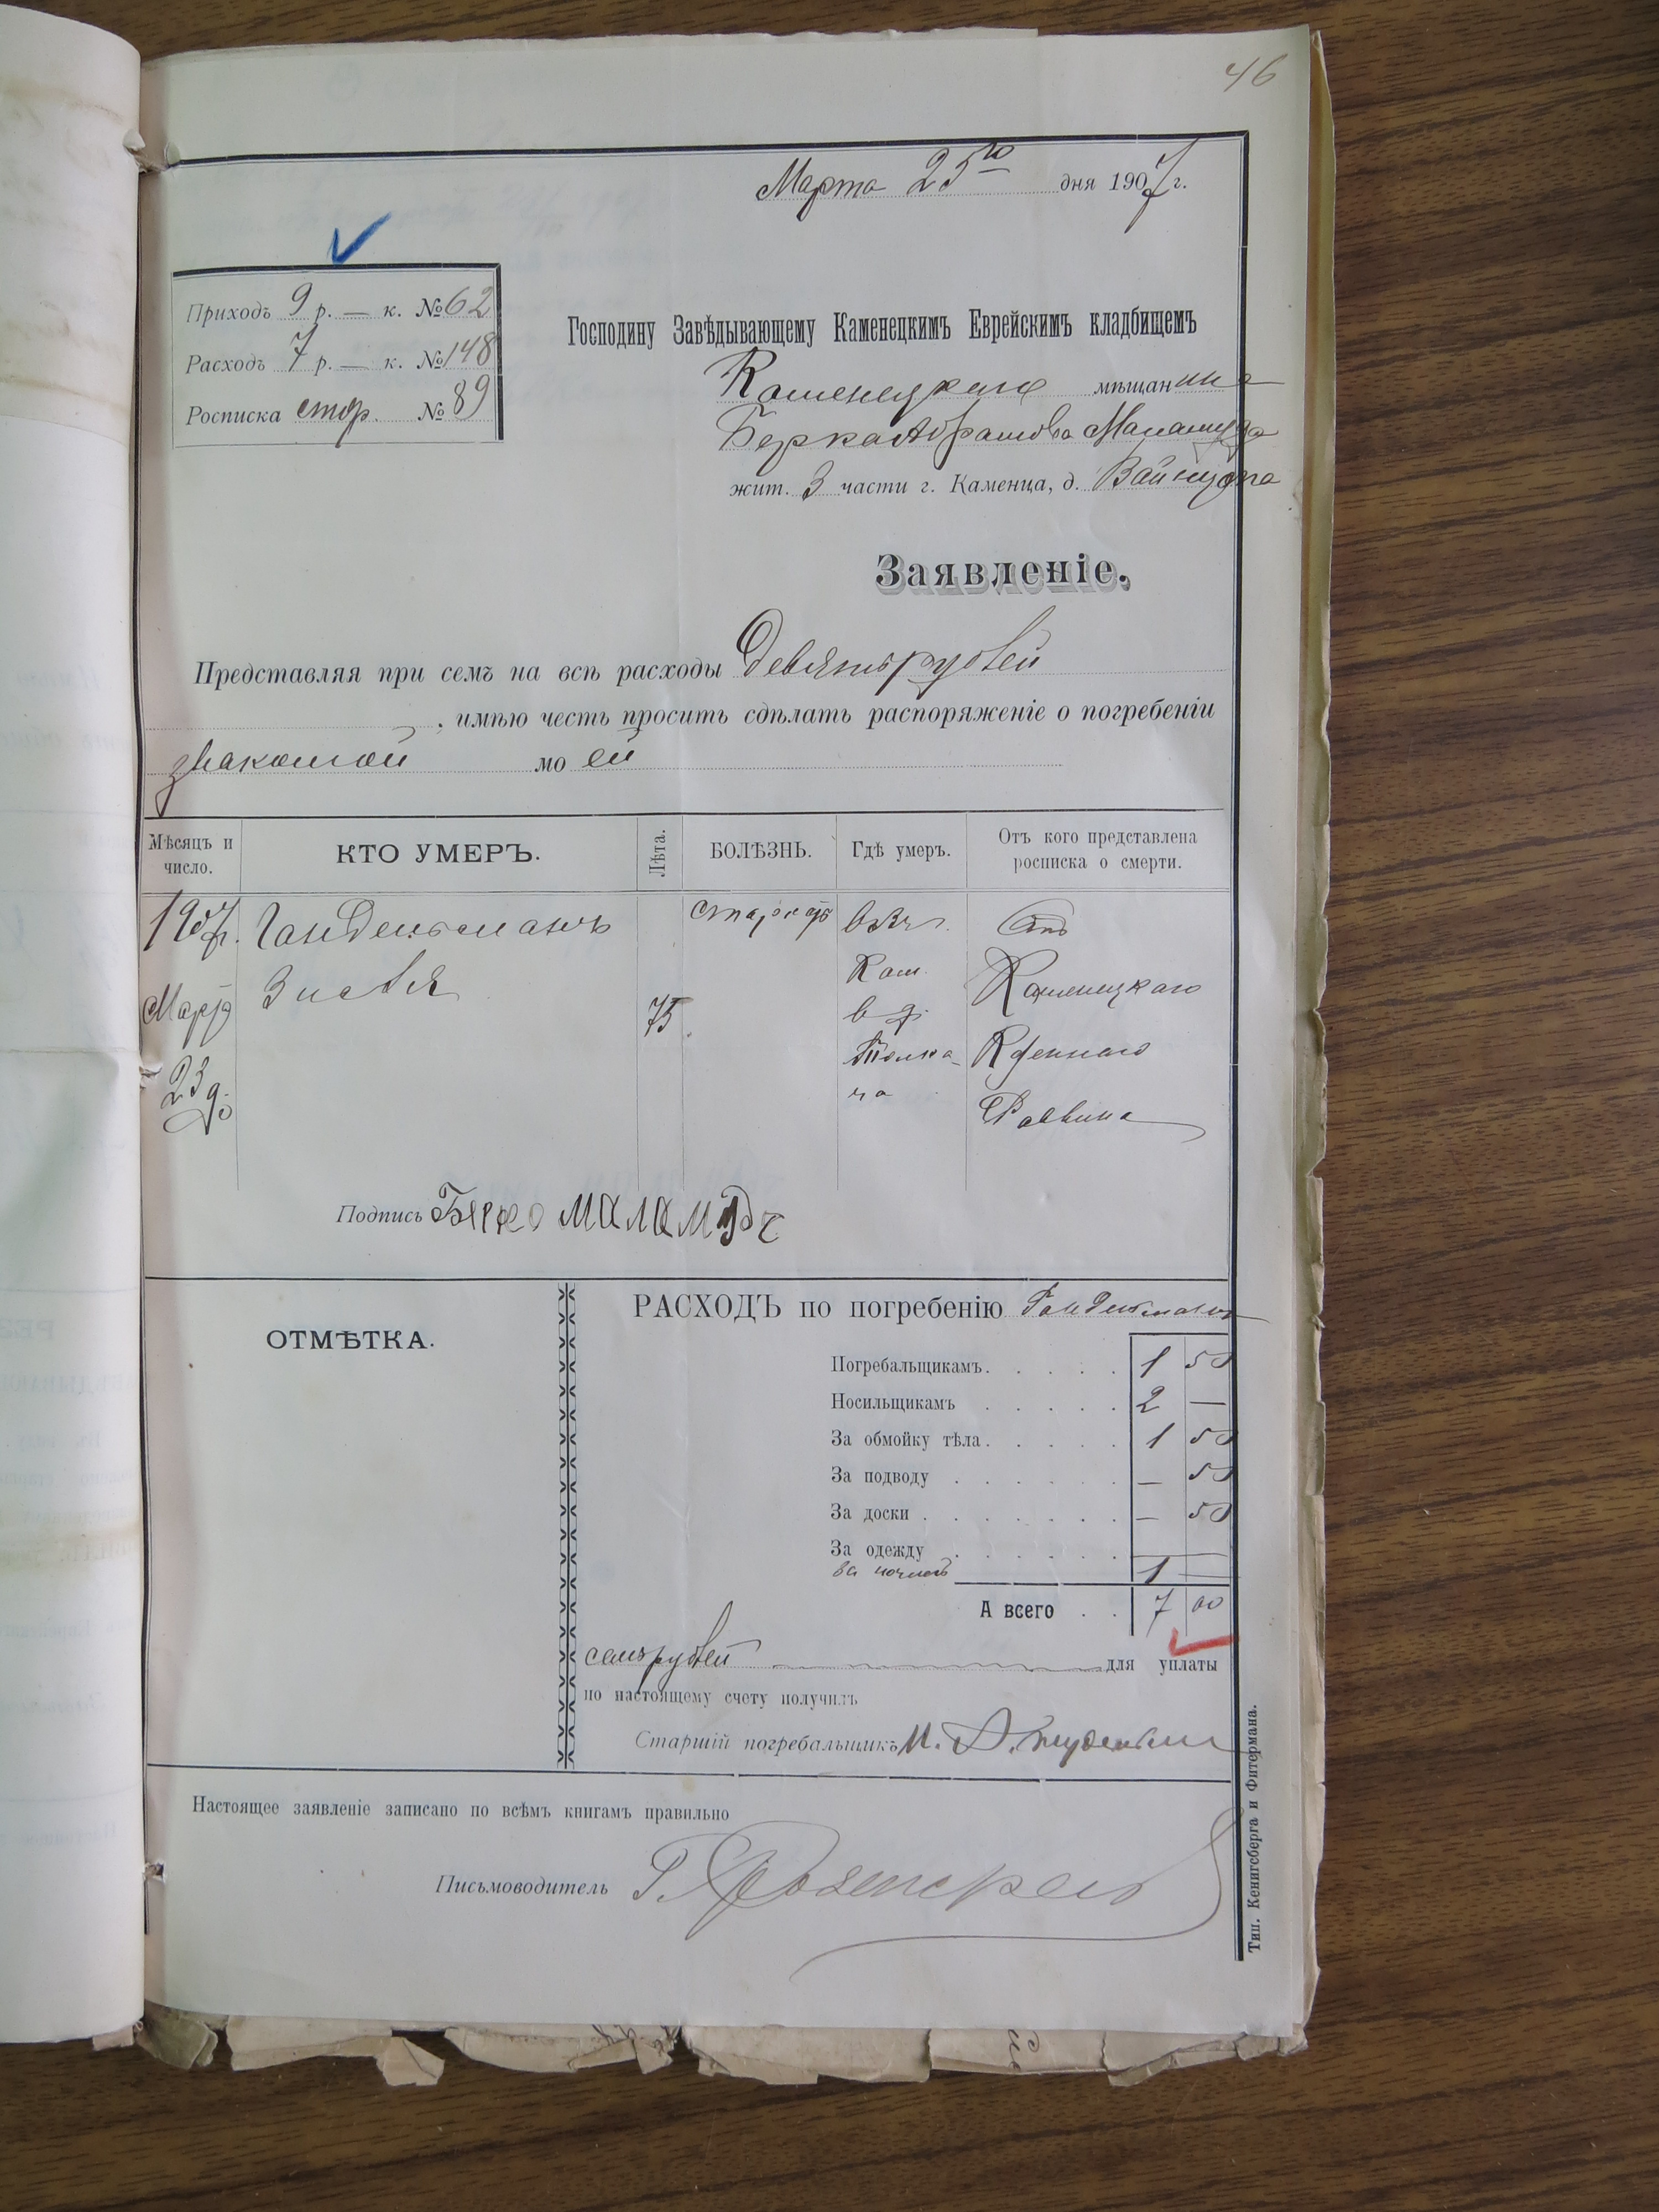 46
Марта 25го дня 1907 г.
Приходъ 9 р. — к. № 62
Расходъ 7 р. — к. № 148
Росписка стор. № 89
Господину Завѣдывающему Каменецкимъ Еврейскимъ кладбищемъ
Каменецкаго мѣщанина
Берка Абрамова Маламуда
жит. 3 части г. Каменца, д. Вайнцота
Заявленіе.
Представляя при семъ на всѣ расходы Девять рублей
, имѣю честь просить сдѣлать распоряженіе о погребеніи
знакомой моей
Мѣсяцъ и число. КТО УМЕРЪ. Лѣта. БОЛѢЗНЬ. Гдѣ умеръ. Отъ кого представлена росписка о смерти.
1907г. Гандельманъ старость въ г. Отъ
Кам. Каменецкаго
Март Зисля 75 в д. Казеннаго
23 д. Толка-
ча Раввина
Подпись Берко Маламудъ
ОТМѢТКА.
РАСХОДЪ по погребенію Гандельманъ
Погребальщикамъ. . . . . 1 50
Носильщикамъ . . . . . 2 —
За обмойку тѣла . . . . . 1 50
За подводу . . . . . . — 50
За доски . . . . . . . — 50
За одежду . . . . . .
за ночлегъ 1 —
А всего . . 7 00
семь рублей для уплаты
по настоящему счету получилъ
Старшій погребальщикъ И. Д.
Настоящее заявленіе записано по всѣмъ книгамъ правильно
Письмоводитель Г.
Тип. Кенигсберга и Фитермана.